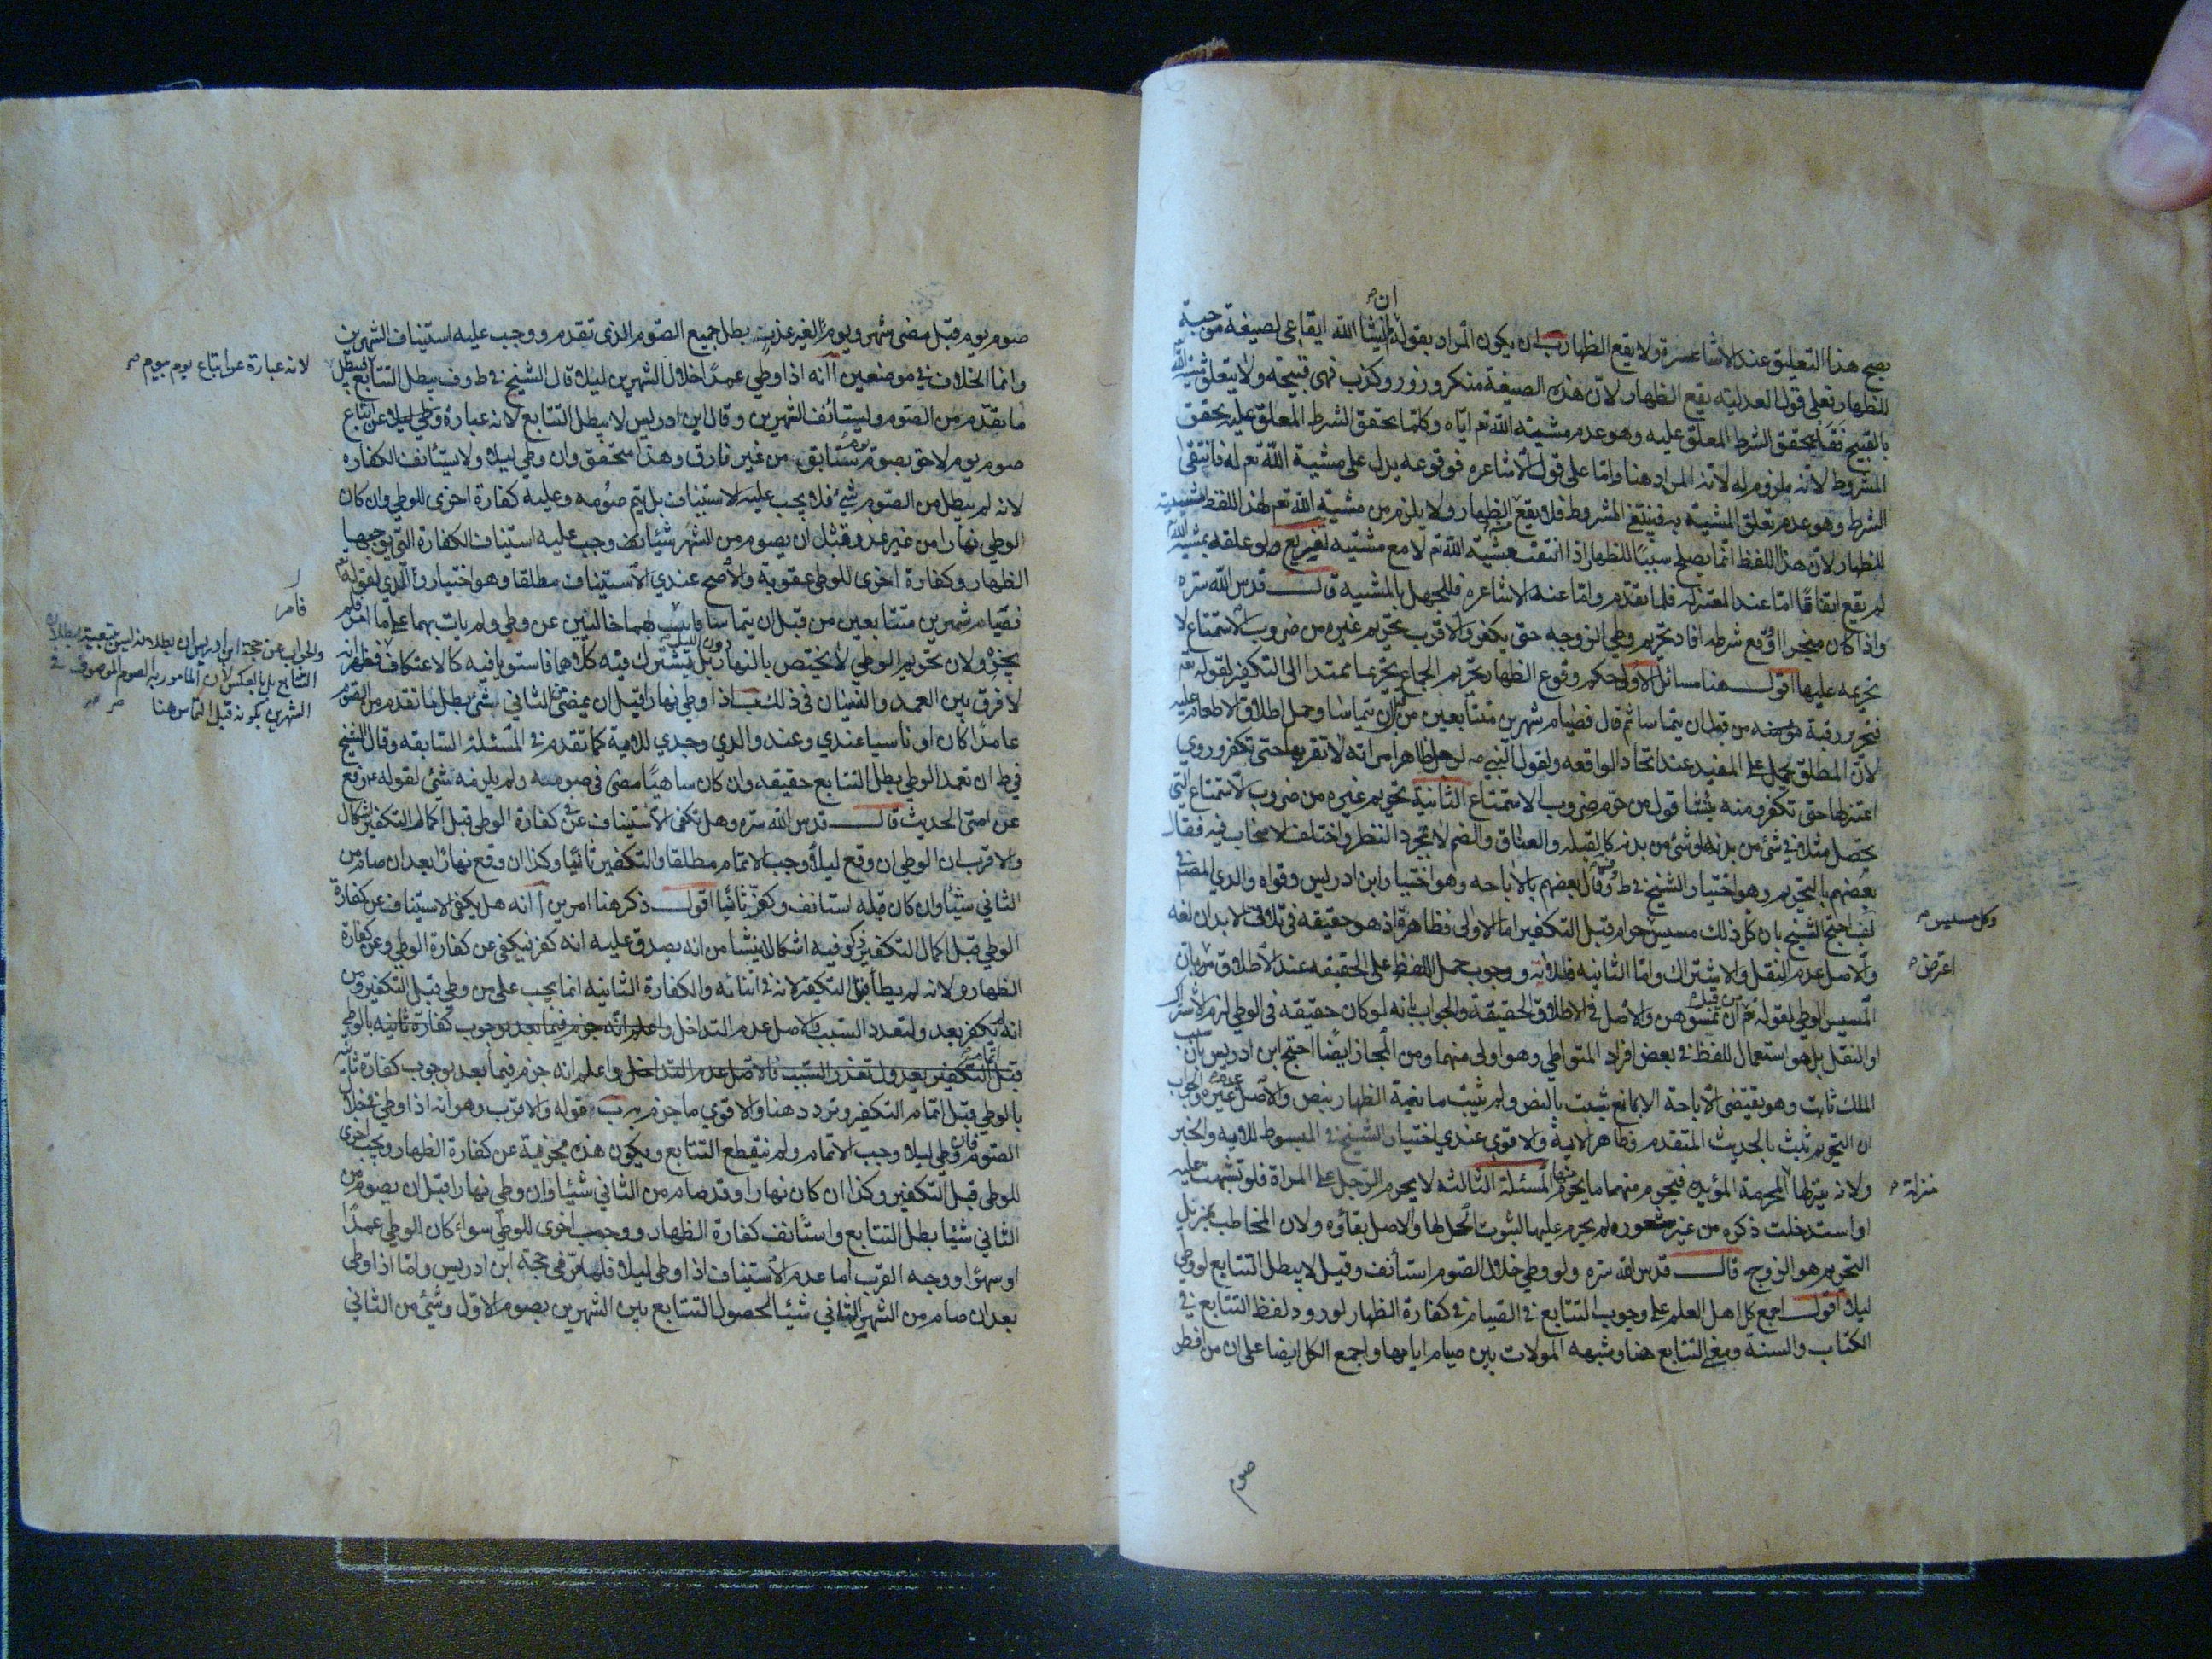 يصح هذا التعليق عند الاشاعرة ولا يقع الظهار ب ان يكون المراد بقوله ان شا الله ايقاعي لصيغة موجبة
للظهار فعلى قول العدلية يقع الظهار لان هذه الصيغة منكر وزور وكذب فهي قبيحة ولا يتعلق مشية الله
بالقبيح فقد تحقق الشرط المعلق عليه وهو عدم مشية الله تع اياه وكلما تحقق الشرط المعلق عليه تحقق
المشروط لانه ملزوم له لانه المراد هنا واما على قول الاشاعره فوقوعه يدل على مشية الله تع له فانتفى
الشرط وهو عدم تعلق المشية به فينتفي المشروط فلا يقع الظهار ولا يلزم من مشية الله تع لهذا اللفظ
للظهار لان هذا اللفظ انما يصلح سببًا للظهار اذا انتفت مشية الله تع لا مع مشيته تفريع ولو علقه بمشية الله
لم يقع اتفاقًا اما عند المعتزله فلما تقدم واما عند الاشاعره فللجهل بالمشيه قال قدس الله سره
واذا كان منجزا او وقع شرطه افاد تحريم وطي الزوجه حتى يكفر والاقرب تحريم غيره من ضروب الاستمتاع لا
تحريمه عليها اقول هنا مسائل الاولى حكم وقوع الظهار تحريم الجماع تحريما ممتدا الى التكفير لقوله تع
فتحرير رقبة من قبل ان يتماسا ثم قال فصيام شهرين متتابعين من قبل ان يتماسا وحمل اطلاق الاطعام عليه
لان المطلق يحمل على المقيد عند اتحاد الواقعه ولقول النبي ص لرجل ظاهر امراته لا تقربها حتى تكفر وروي
اعتزلها حتى تكفر ومنه يشا قوله من حرم ضروب الاستمتاع الثانية تحريم غيره من ضروب الاستمتاع التي
تحصل مثلا في شئ من بدنها لشئ من بدنه كالقبله والعناق والضم لا بمجرد النظر واختلف الاصحاب فيه فقال
بعضهم بالتحريم وهو اختيار الشيخ في ط وف وقال بعضهم بالاباحه وهو اختيار ابن ادريس وقواه والدي المصنف في
لف احتج الشيخ بان كل ذلك مسيس حرام قبل التكفير اما الاولى فظاهرة اذ هو حقيقه في تلاقي الابدان لغه
وكل مسيس
والاصل عدم النقل والاشتراك واما الثانيه فللاية ووجوب حمل اللفظ على الحقيقه عند الاطلاق بان
اعترض
المسيس الوطي لقوله تع من قبل ان تمسوهن والاصل في الاطلاق الحقيقة والجواب بانه لو كان حقيقه في الوطي لزم الاشتراك
او النقل بل هو استعمال للفظ في بعض افراد المتواطي وهو اولى منهما ومن المجاز ايضًا احتج ابن ادريس بان سبب
الملك ثابت وهو يقتضي الاباحة الا بمانع يثبت بالنص ولم يثبت مانعية الظهار بنص والاصل عدمه والجواب
ان التحريم ثبت بالحديث المتقدم وظاهر الاية والاقوى عندي اختيار الشيخ في المبسوط للاية والخبر
ولانه ينزلها المحرمة المؤبده فيحرم منهما ما يحرم منها المسئلة الثالثه لا يحرم الرجل على المراة فلو تشبهت عليه
منزلة
او استدخلت ذكره من غير شعوره لم يحرم عليها لثبوت الحل لها والاصل بقاؤه ولان المخاطب بمزيل
التحريم هو الزوج قال قدس الله سره ولو وطي خلال الصوم استأنف وقيل لا يبطل التتابع لو وطي
ليلا اقول اجمع كل اهل العلم على وجوب التتابع في الصيام في كفارة الظهار لورود لفظ التتابع في
الكتاب والسنة ومعنى التتابع هنا وشبهه الموالات بين صيام ايامها واجمع الكل ايضا على ان من افطر
صوم
صوم يوم قبل مضي شهر ويوم لغير عذر بطل جميع الصوم الذي تقدم ووجب عليه استيناف الشهرين
وانما الخلاف في موضعين ا انه اذا وطي عمدًا خلال الشهرين ليلا قال الشيخ في ط وف يبطل التتابع فيبطل
لانه عبارة عن اتباع يوم بيوم
ما تقدم من الصوم وليستأنف الشهرين وقال ابن ادريس لا يبطل التتابع لانه عبارة عن اتباع
صوم يوم لاحق بصوم يوم سابق من غير فارق وهذا متحقق وان وطي ليلا ولا يستأنف الكفاره
لانه لم يبطل من الصوم شئ فلا يجب عليه الاستيناف بل يتم صومه وعليه كفارة اخرى للوطي وان كان
الوطي نهارا من غير عذر وقبل ان يصوم من الشهر شيئا وجب عليه استيناف الكفارة التي يوجبها
الظهار وكفارة اخرى للوطي عقوبة والاصح عندي الاستيناف مطلقا وهو اختيار والدي لقوله تع
فصيام شهرين متتابعين من قبل ان يتماسا فاوجب بهما خاليين عن وطي ولم يات بهما على ما امر فلم
يجزه ولان تحريم الوطي لا يختص بالنهار دون الليل بل يشترك فيه كلاهما فاستويا فيه كالاعتكاف فظهر انه
والجواب عن حجة ابن ادريس ان بطلانه ليس بتبعية بطلان
التتابع بل بالعكس لان المامور به الصوم الموصوف في
لا فرق بين العمد والنسيان في ذلك ب اذا وطي نهارا قبل ان يمضي من الثاني شئ بطل ما تقدم من الصوم
الشهرين بكونه قبل التماس هنا
عامدا كان او ناسيا عندي وعند والدي وجدي للاية كما تقدم في المسئلة السابقه وقال الشيخ
في ط ان تعمد الوطي بطل التتابع حقيقه وان كان ساهيًا مضى في صومه ولم يلزمه شئ لقوله ع رفع
عن امتي الحديث قال قدس الله سره وهل تكفي الاستيناف عن كفارة الوطي قبل اكمال التكفير اشكال
والاقرب ان الوطي ان وقع ليلا وجب الاتمام مطلقا والتكفير ثانيًا وكذا ان وقع نهارًا بعد ان صام من
الثاني شيئا وان كان قبله استانف وكفر ثانيًا اقول ذكر هنا امرين ا انه هل يكفي الاستيناف عن كفارة
الوطي قبل اكمال التكفير وفيه اشكال ينشا من انه يصدق عليه انه كفر فيكفي عن كفارة الوطي وعن كفارة
الظهار ولانه لم يطأ قبل التكفير لانه في اثنائه والكفارة الثانيه انما يجب على من وطي قبل التكفير ومن
انه لم يكفر بعد ولتعدد السبب والاصل عدم التداخل واعلم انه جزم فيما بعد بوجوب كفارة ثانيه بالوطي
قبل اتمام التكفير بعد ولتعدد السبب فالاصل عدم التداخل واعلم انه جزم فيما بعد بوجوب كفارة ثانيه
بالوطي قبل اتمام التكفير وتردد هنا والاقوى ما جزم به ب قوله والاقرب وهو انه اذا وطي في خلال
الصوم فان وطي ليلا وجب الاتمام ولم ينقطع التتابع ويكون هذه مجزية عن كفارة الظهار ويجب اخرى
للوطي قبل التكفير وكذا ان كان نهارا وقد صام من الثاني شيئا وان وطي نهارا قبل ان يصوم من
الثاني شيئا بطل التتابع واستأنف كفارة الظهار ووجب اخرى للوطي سواء كان الوطي عمدًا
او سهوًا ووجه القرب اما عدم الاستيناف اذا وطي ليلا فلما مر في حجة ابن ادريس واما اذا وطي
بعد ان صام من الشهر الثاني شيئا لحصول التتابع بين الشهرين بصوم الاول وشئ من الثاني